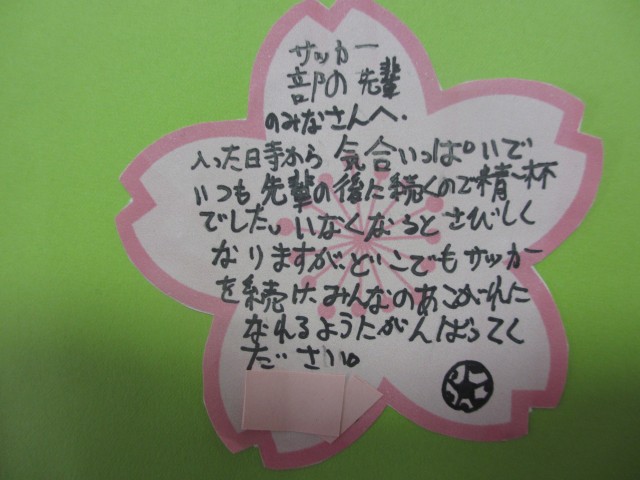 サッカー
部の先輩
のみなさんへ.
入った日寺から気合いっぱいで
いつも先輩の後に続くので精一杯
でした。いなくなるとさびしく
なりますが、どこでもサッカー
を続け、みんなのあこがれに
なれるようにがんばってく
ださい。